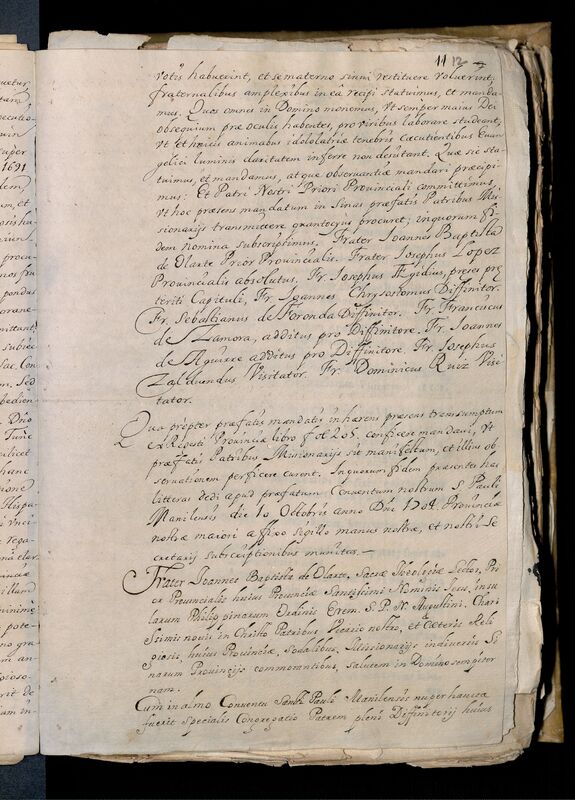 11 12
votis habuerint, et se materno sinui restituere voluerint,
fraternalibus amplexibus in eâ recipi statuimus, et manda-
mus. Quos omnes in Domino monemus, Vt semper maius Dei
obsequium præ oculis habentes, pro viribus laborare studeant,
Vt ethnicis animabus idololatriæ tenebris cæcutientibus Euan
gelici luminis claritatem inferre non desistant. Quæ sic sta-
tuimus, et mandamus, atque observantiæ mandari præcipi
mus: Et Patri Nostri Priori Provinciali committimus,
Vt hoc præsens mandatum in Sinas præfatis Patribus Mis
sionarijs transmittere quantocyus procuret; inquorum fi-
dem nomina subscripsimus. Frater Ioannes Baptista
de Olarte Prior Provincialis. Frater Iosephus Lopez
Provincialis absolutus. Fr. Iosephus Ægidius, preses præ
teriti Capituli, Fr. Ioannes Chrysostomus Diffinitor.
Fr. Sebastianus de Foronda Diffinitor. Fr. Franciscus
de Zamora, additus pro Diffinitore. Fr. Ioannes
de Aguirre additus pro Diffinitore. Fr. Iosephus
Zalduendus Visitator. Fr. Dominicus Ruiz Visi
tator.
Qua propter præfatis mandatis inhærens præsens transumptum
ex Registi Provinciæ libro fol 205. conficere mandavi, Vt
præfatis Patribus Missionarijs sit manifestum, et illius ob
servationem perficere curent. Inquorum fidem præsentes has
litteras dedi apud præfatum Conventum nostrum S. Pauli
Manilensis die 10 Octobris anno Dni 1704. Provinciæ
nostræ maiori affixo sigillo manus nostræ, et nostri Se
cretarij subscriptionibus munitas.—
Frater Ioannes Baptista de Olarte, Sacræ Theologiæ Lector, Pri
or Provincialis huius Provinciæ Sanctissimi Nominis Iesu, insu
larum Philippinarum Ordinis Erem. S. P. N. Augustini. Chari
ssimis nobis in Christo Patribus Vicario nostro, et cæteris Reli
giosis, huius Provinciæ, sodalibus, Missionarijs indiversis Si
narum Provincijs commorantibus, salutem in Domino sempiter
nam.
Cum in almo Conventu Sancti Pauli Manilensis nuper habita
fuerit Specialis Congregatio Patrum pleni Diffinitorij huius